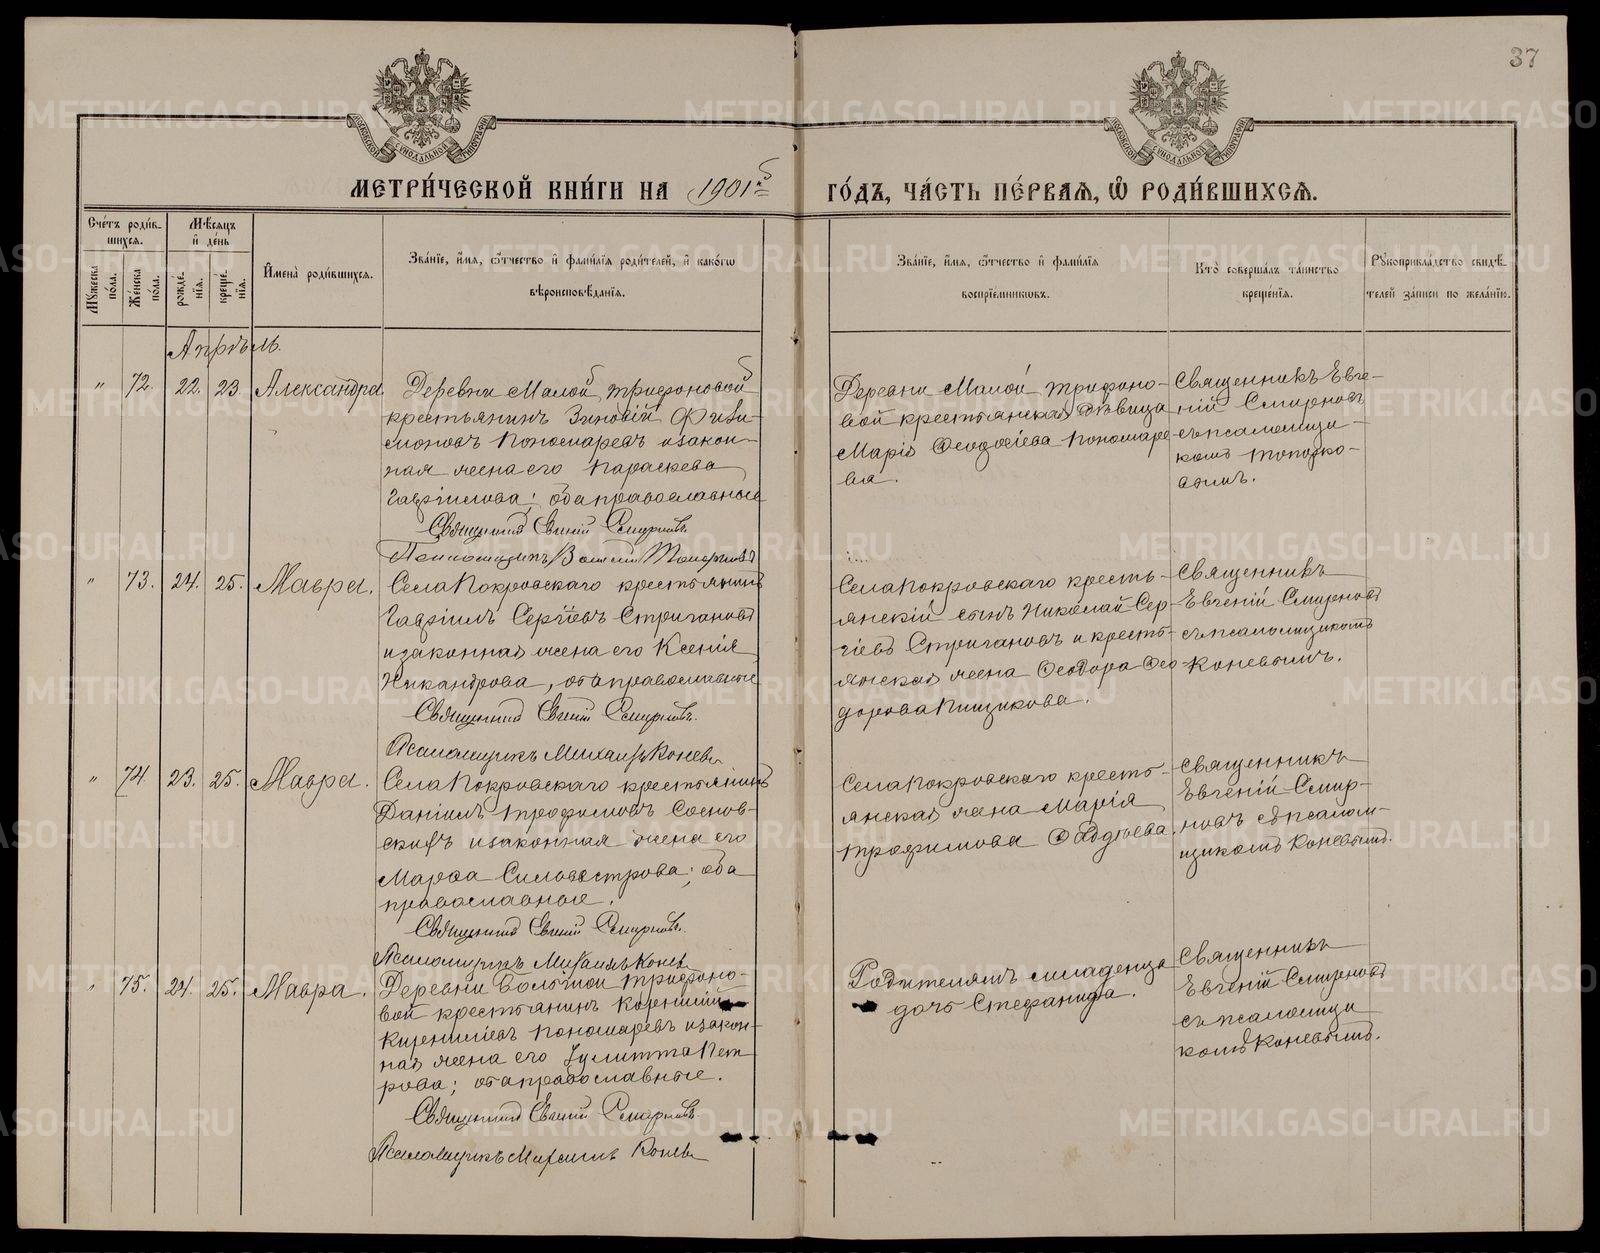 37
МЕТРИ́ЧЕСКОЙ КНИ́ГИ НА 1901й ГО́ДЪ, ЧА́СТЬ ПЕ́РВАЯ, Ѡ РОДИ́ВШИХСЯ.
Сче́тъ роди́в-
шихся.
Мѣсяцъ
и де́нь
Мужеска по́ла.
Же́нска по́ла.
рожде́нія.
креще́нія.
Имена̀ роди́вшихся.
Зва́ніе, и́мя, о́тчество и фами́лія роди́телей, и како́го
вѣроисповѣ́данія.
Зва́ніе, и́мя, о́тчество и фами́лія
воспріе́мниковъ.
Кто̀ соверша́лъ та́инство
креще́нія.
Рукоприкла́дство свидѣ́-
телей за́писи по жела́нію.
Апрѣль.
" 72. 22. 23. Александра.
Деревни Малой Трифоновой
крестьянинъ Зиновій Фили-
моновъ Пономаревъ и закон-
ная жена его Параскева
Гавріилова; оба православные
Священникъ Евгеній Смирновъ
Псаломщикъ Топорковъ
Деревни Малой Трифоно-
вой крестьянская дѣвица
Марія Ѳеодосіева Пономаре
ва.
Священникъ Евге-
ній Смирновъ
съ псаломщи-
комъ Топорко-
вымъ.
" 73. 24. 25. Мавра.
Села Покровскаго крестьянинъ
Гавріилъ Сергіевъ Стригановъ
и законная жена его Ксенія
Никандрова, оба православные
Священникъ Евгеній Смирновъ.
Псаломщикъ Михаилъ Коневъ
Села Покровскаго кресть-
янскій сынъ Николай Сер-
гіевъ Стригановъ и кресть-
янская жена Ѳеодора Ѳео-
дорова Пищикова.
Священникъ
Евгеній Смирновъ
съ псаломщикомъ
Коневымъ.
" 74 23. 25. Мавра.
Села Покровскаго крестьянинъ
Даніилъ Трофимовъ Соснов-
скихъ и законная жена его
Марѳа Сильвестрова; оба
православные.
Священникъ Евгеній Смирновъ.
Псаломщикъ Михаилъ Коневъ
Села Покровскаго кресть-
янская жена Марія
Трофимова
Священникъ
Евгеній Смир-
новъ съ псалом-
щикомъ Коневымъ.
" 75. 24. 25. Мавра.
Деревни Большой Трифоно-
вой крестьянинъ
Пономаревъ и закон-
ная жена его Іулитта Пет
рова; оба православные.
Священникъ Евгеній Смирновъ.
Псаломщикъ Михаилъ Коневъ
Родителямъ младенца
дочь Стефанида.
Священникъ
Евгеній Смирновъ
съ псаломщи
комъ Коневымъ.
METRIKI.GASO-URAL.RU